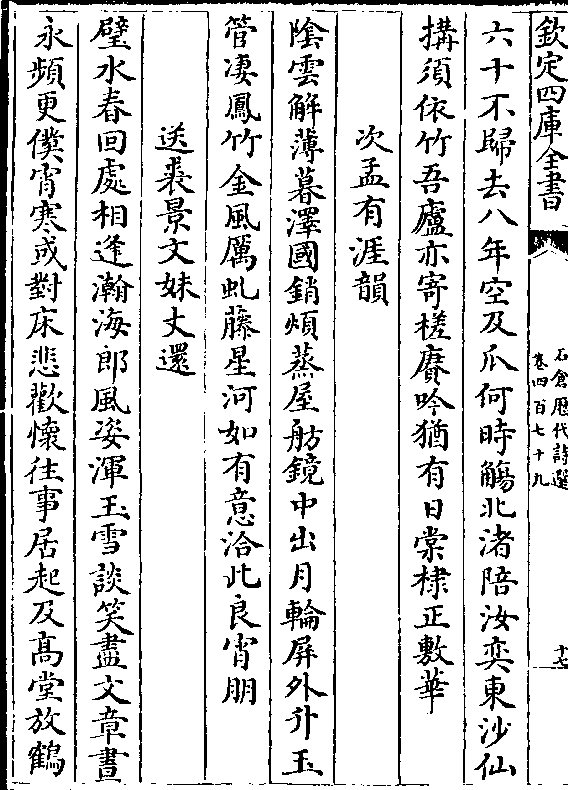 欽定四庫全書
石倉歷代詩選
卷四百七十九
十七
六十不歸去八年空及瓜何時觴北渚陪汝奕東沙仙
搆須依竹吾廬亦寄槎賡吟猶有日棠棣正敷華
次孟有涯韻
陰雲解薄暮澤國銷煩蒸屋舫鏡中出月輪屏外升玉
管凄鳳竹金風厲虬藤星河如有意洽此良宵朋
送裘景文妹丈還
璧水春回處相逢瀚海郎風姿渾玉雪談笑盡文章晝
永頻更僕宵寒或對床悲歡懷往事居起及高堂放鶴